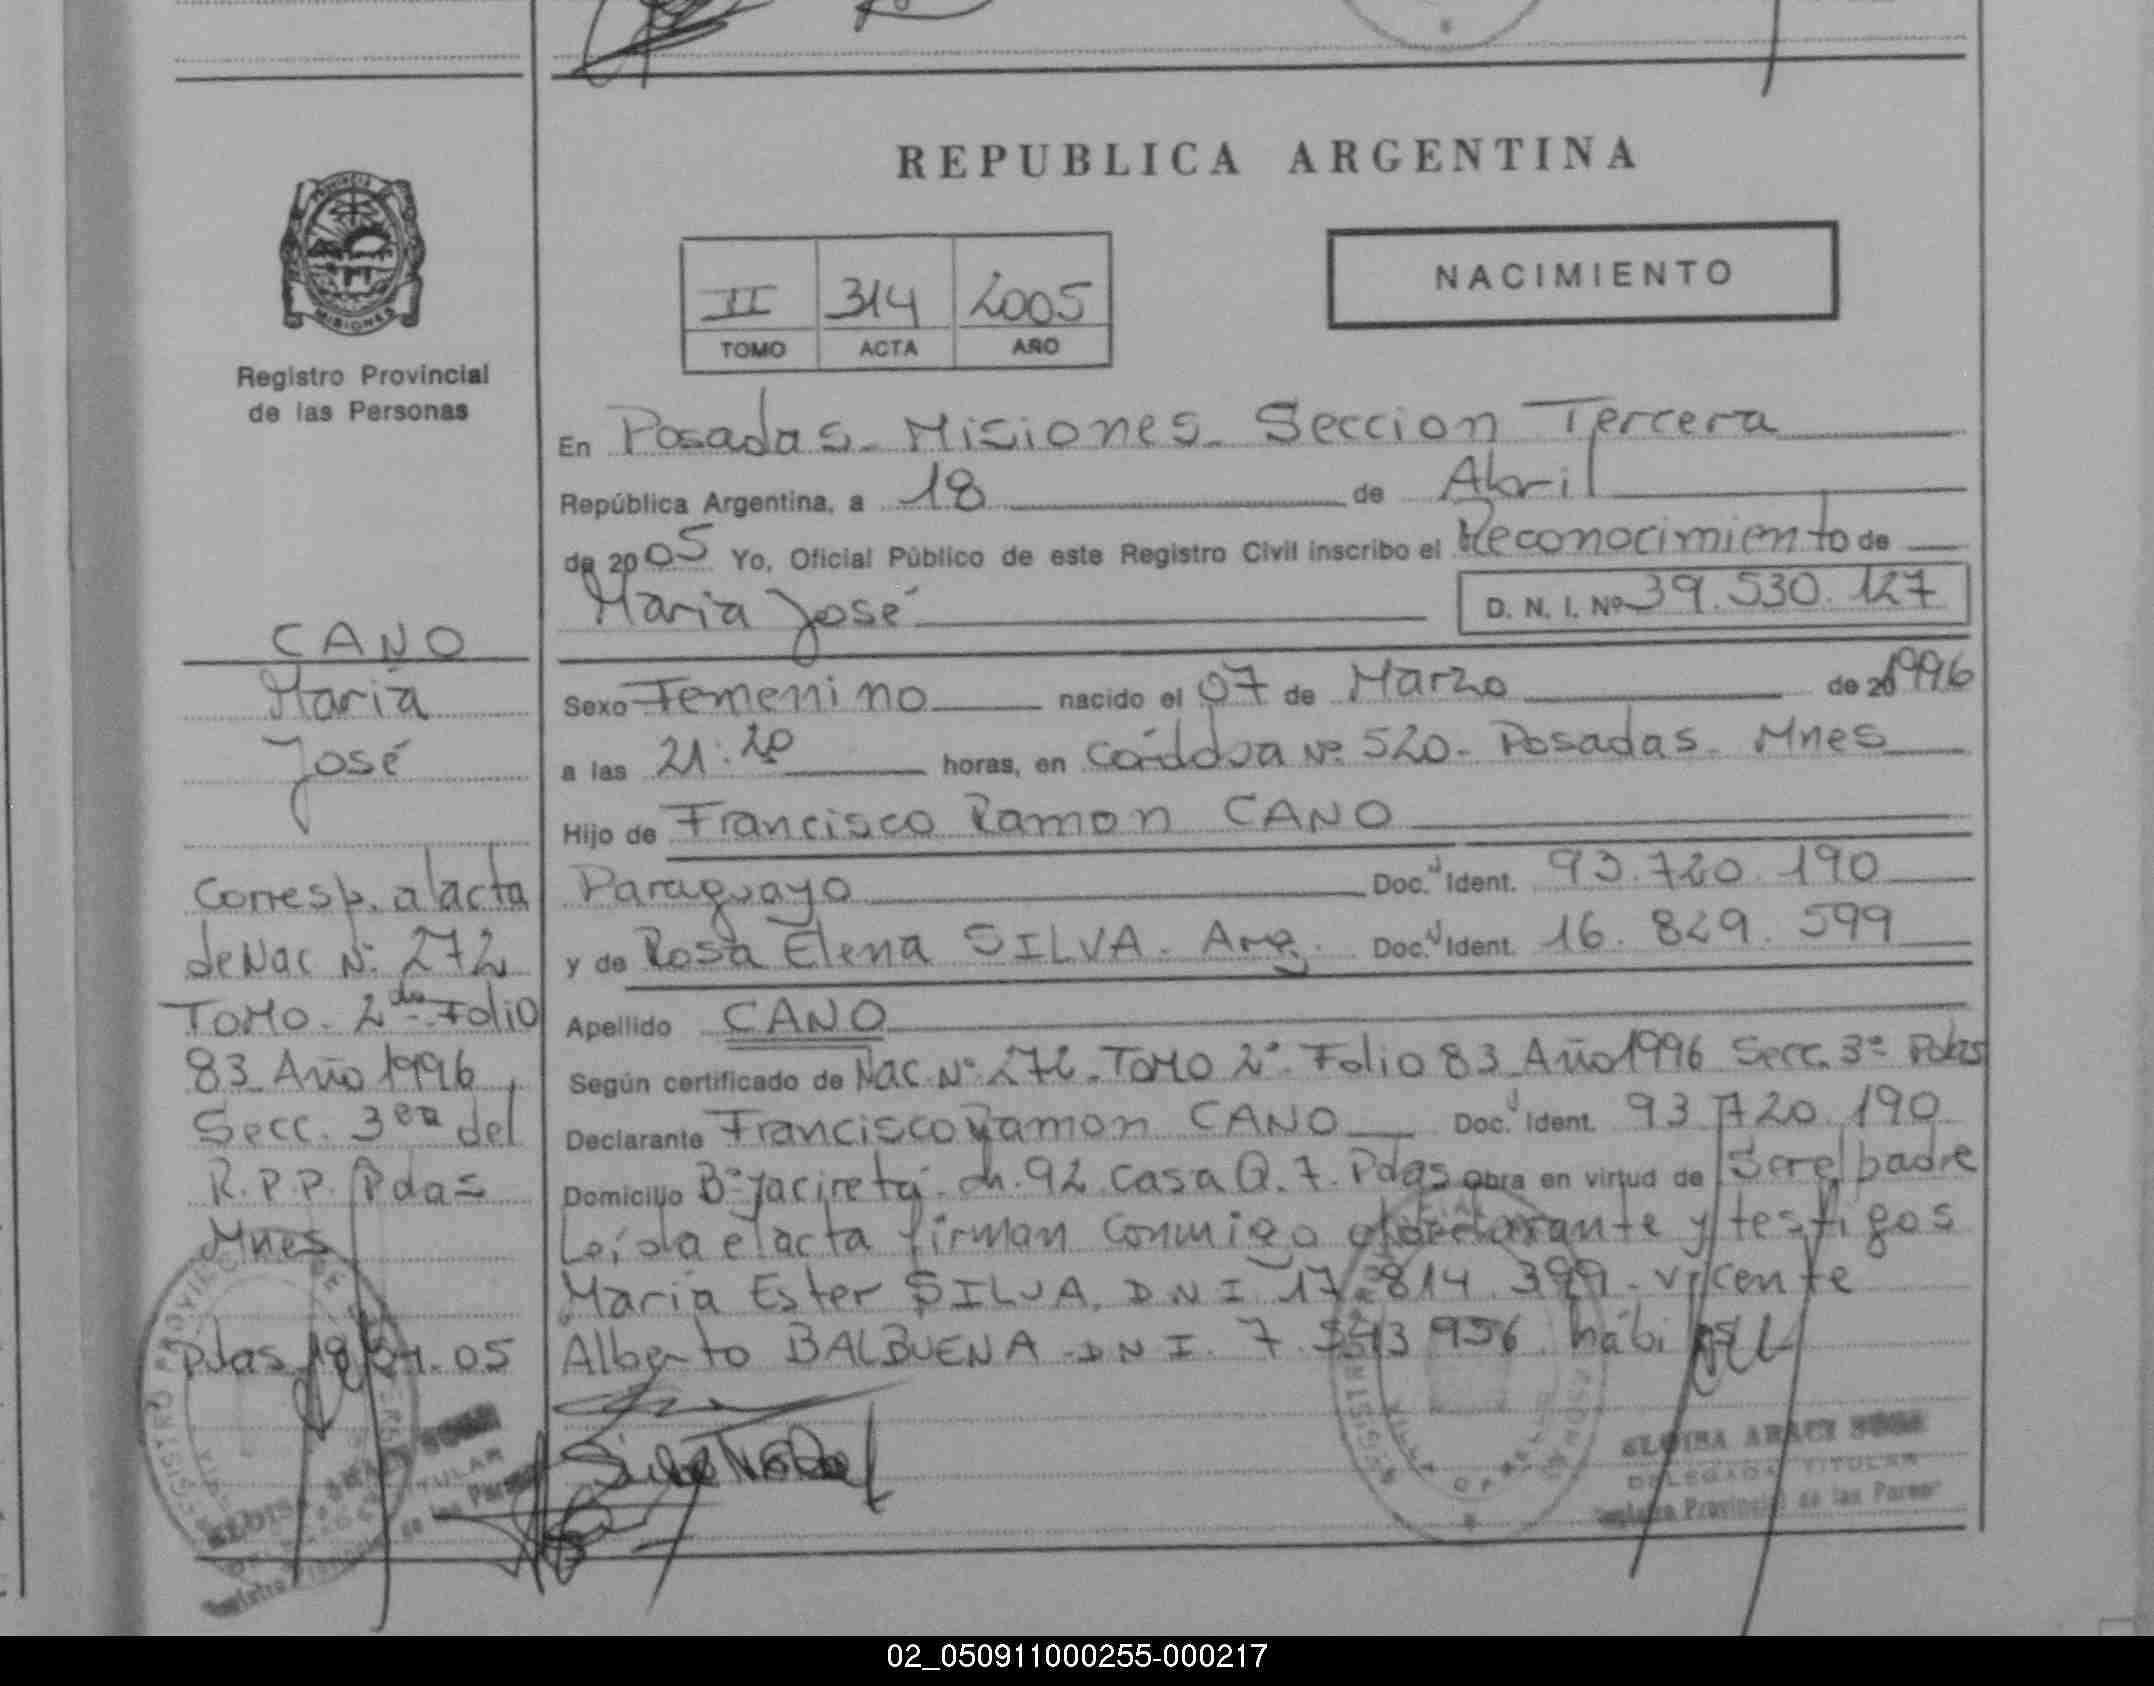 REPUBLICA ARGENTINA
NACIMIENTO
II 314 2005
TOMO ACTA AÑO
PROVINCIA
MISIONES
Registro Provincial
de las Personas
En Posadas - Misiones - Seccion Tercera
República Argentina, a 18 de Abril
de 2005 Yo, Oficial Público de este Registro Civil inscribo el Reconocimiento de
Maria José D. N. I. Nº 39.530.127
CANO
Maria
José
Sexo Femenino nacido el 07 de Marzo de 1996
a las 21:20 horas, en Córdova Nº 520 - Posadas - Mnes
Hijo de Francisco Ramon CANO
Paraguayo Doc. Ident. 93.720.190
y de Rosa Elena SILVA - Arg. Doc. Ident. 16.829.599
Apellido CANO
Según certificado de Nac. Nº 272 - Tomo 2º - Folio 83 Año 1996 Secc. 3ª Pdas
Declarante Francisco Ramon CANO Doc. Ident. 93.720.190
Domicilio Bº Yacireta ch. 92 Casa Q. 7. Pdas obra en virtud de Ser el padre
Leída el acta firman conmigo declarante y testigos
Maria Ester SILVA. D N I. 17.814.399 - Vicente
Alberto BALBUENA - D N I. 7. 956. hábi
Corresp. al acta
de Nac Nº 272
Tomo - 2do - Folio
83 Año 1996
Secc. 3era del
R.P.P. Pdas
Mnes
Pdas 18.04.05
DELEGADA TITULAR
Provincial de las Person
02_050911000255-000217